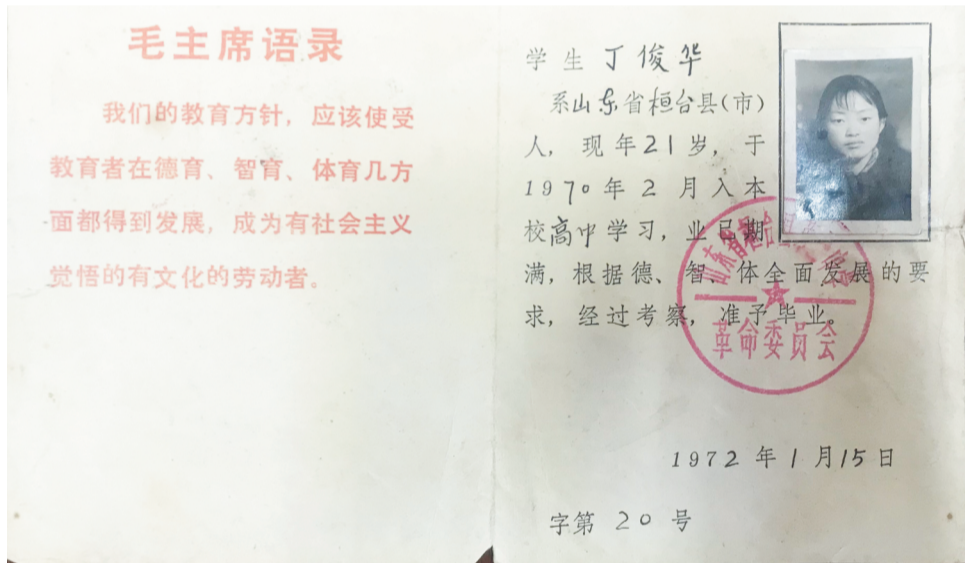 毛主席语录
我们的教育方针，应该使受
教育者在德育、智育、体育几方
面都得到发展，成为有社会主义
觉悟的有文化的劳动者。
学生丁俊华
系山东省桓台县（市）
人，现年21岁，于
1970年2月入本
校高中学习，业已期
满，根据德、智、体全面发展的要
求，经过考察，准予毕业。
山东省桓台
革命委员会
1972年1月15日
字第20号